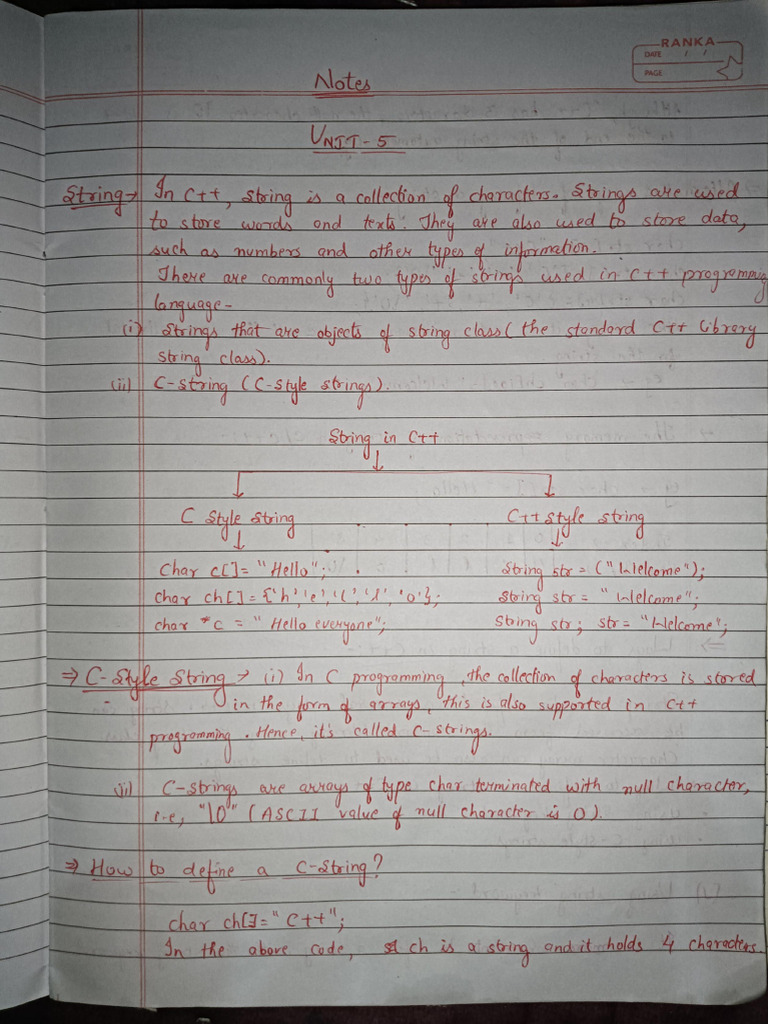 RANKA
DATE / /
PAGE
Notes
UNIT-5
String → In C++, string is a collection of characters. Strings are used
to store words and texts. They are also used to store data,
such as numbers and other types of information.
There are commonly two types of strings used in C++ programming
language-
(i) Strings that are objects of string class (the standard C++ library
string class).
(ii) C-string (C-style strings).
String in C++
C Style String C++ Style string
char c[]= "Hello"; String str = ("Welcome");
char ch[]={'h','e','l','l','o'}; String str = "Welcome";
char *c = "Hello everyone"; String str; str= "Welcome";
⇒ C-Style String → (i) In C programming, the collection of characters is stored
in the form of arrays, this is also supported in C++
programming. Hence, it's called C-strings.
(ii) C-strings are arrays of type char terminated with null character,
i-e, "\0" (ASCII value of null character is 0).
⇒ How to define a C-String?
char ch[]="C++";
In the above code, ch is a string and it holds 4 characters.